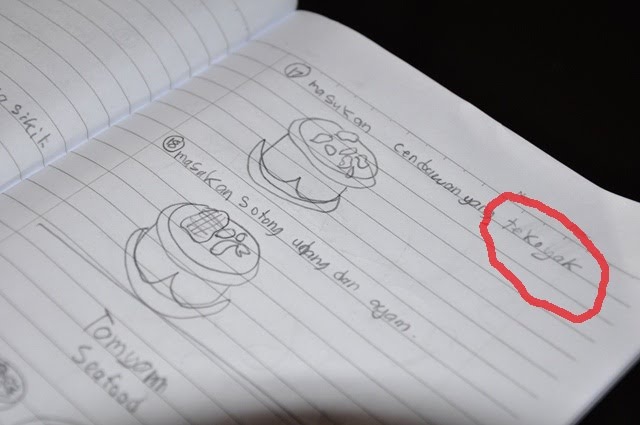 17 masukan cendawan yang tekoyak
18 masakan sotong udang dan ayam.
Tomyamm
Seafood
sikit